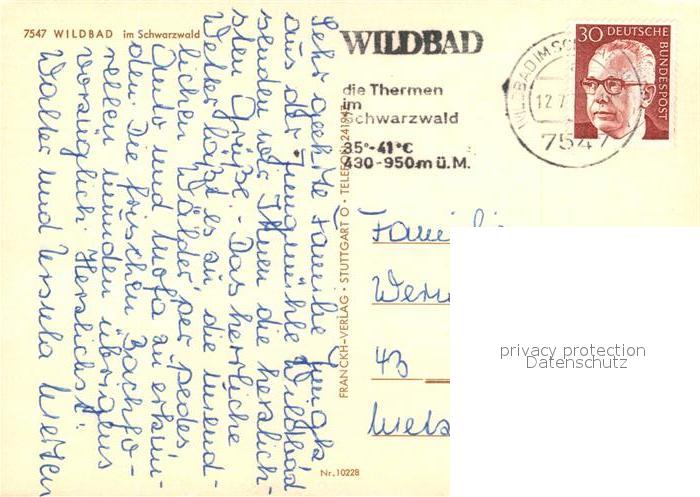 7547 WILDBAD im Schwarzwald
Sehr geehrte Familie
aus der Jungmühle Wildbad
senden wir Ihnen die herzlich-
sten Grüße. Das herrliche
Wetter läßt es zu, die unend-
lichen Wälder per pedes
Auto und Mofa zu erkun-
den. Die frischen Bachfo-
rellen munden übrigens
vorzüglich! Herzlichst
Walter und Ursula
FRANCKH-VERLAG · STUTTGART O · TELEFON
Nr. 10228
WILDBAD
die Thermen
im
Schwarzwald
35°-41°C
430-950m ü.M.
WILDBAD IM SC
12.7
7547
30 DEUTSCHE
BUNDESPOST
Familie
43
privacy protection
Datenschutz